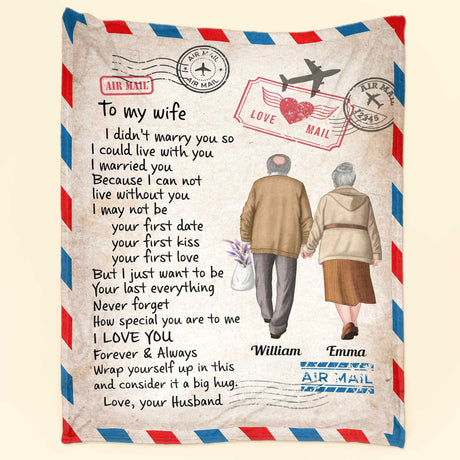 AIR MAIL
AIR MAIL
AIR MAIL
LOVE MAIL
AIR MAIL
12345
To my wife
I didn't marry you so
I could live with you
I married you
Because I can not
live without you
I may not be
your first date
your first kiss
your first love
But I just want to be
Your last everything
Never forget
How special you are to me
I LOVE YOU
Forever & Always
Wrap yourself up in this
and consider it a big hug.
Love, your Husband
William Emma
AIR MAIL